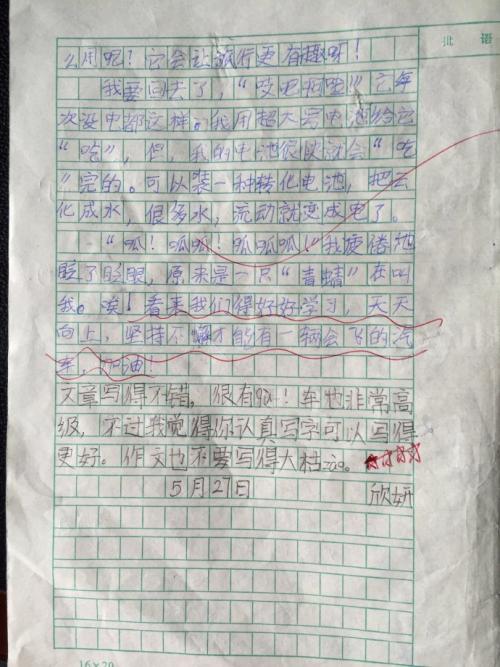 批 语
么用呢？它会让旅行更有趣呀！
我要回去了，“哎吧啊啦”它每
次没电都这样。我用超大号电池给它
“吃”，但，我的电池很快就会“吃
”完的。可以装一种转化电池，把云
化成水，很多水，流动就变成电了。
“呱！呱呱！呱呱呱！”我疲倦地
眨了眨眼，原来是一只“青蜻”在叫
我。唉！看来我们得好好学习，天天
向上，坚持不懈才能有一辆会飞的汽
车，加油！
文章写得不错，很有！车也非常高
级，不过我觉得你认真写字可以写得
更好。作文也不要写得太枯。
5月27日 欣妍
16×20